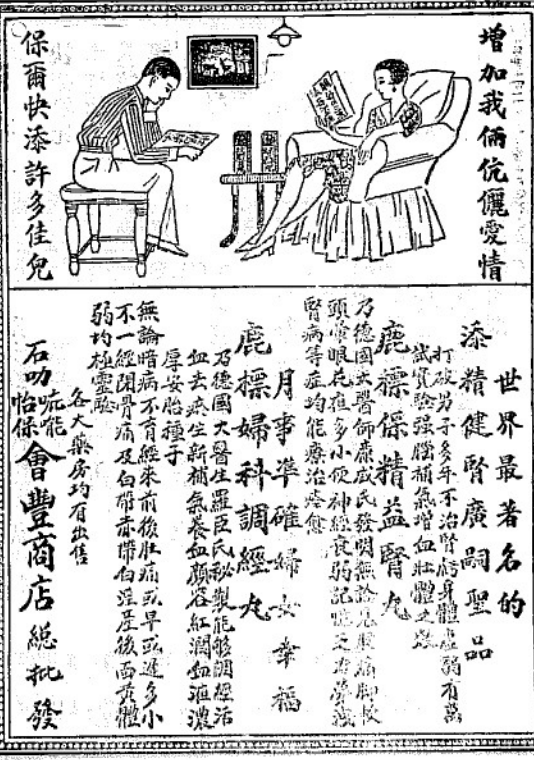 增加我倆伉儷愛情
保爾快添許多佳兒
世界最著名的
添精健腎廣嗣聖品
打破男子多年不治腎虧身體虛弱有萬
試實驗强腦補氣增血壯體之效
鹿標保精益腎丸
乃德國大醫師康威氏發明無論腰痛脚酸
頭暈眼花夜多小便神經衰弱記憶乏力夢遺
腎病等症均能療治痊愈
月事準確婦女幸福
鹿標婦科調經丸
乃德國大醫生羅臣氏秘製能够調經活
血去瘀生新補氣養血顏容紅潤血液濃
厚安胎種子
無論暗病不育經來前後肚痛或早或遲多小
不一經閉骨痛及白帶赤帶白淫產後面黃體
弱均極靈驗
各大藥房均有出售
石叻
吡能
怡保
會豐商店總批發